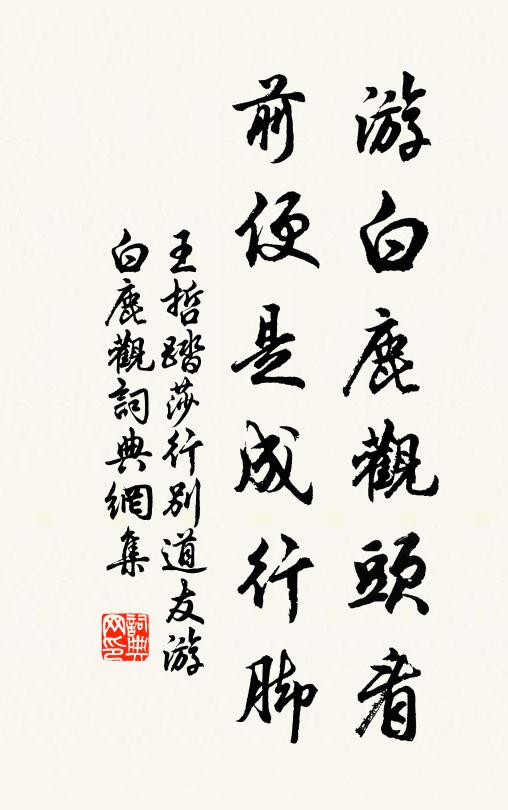 游白鹿觀頭看
前便是成行脚
王哲踏莎行别道友游
白鹿觀詞典網集
詞典
网印